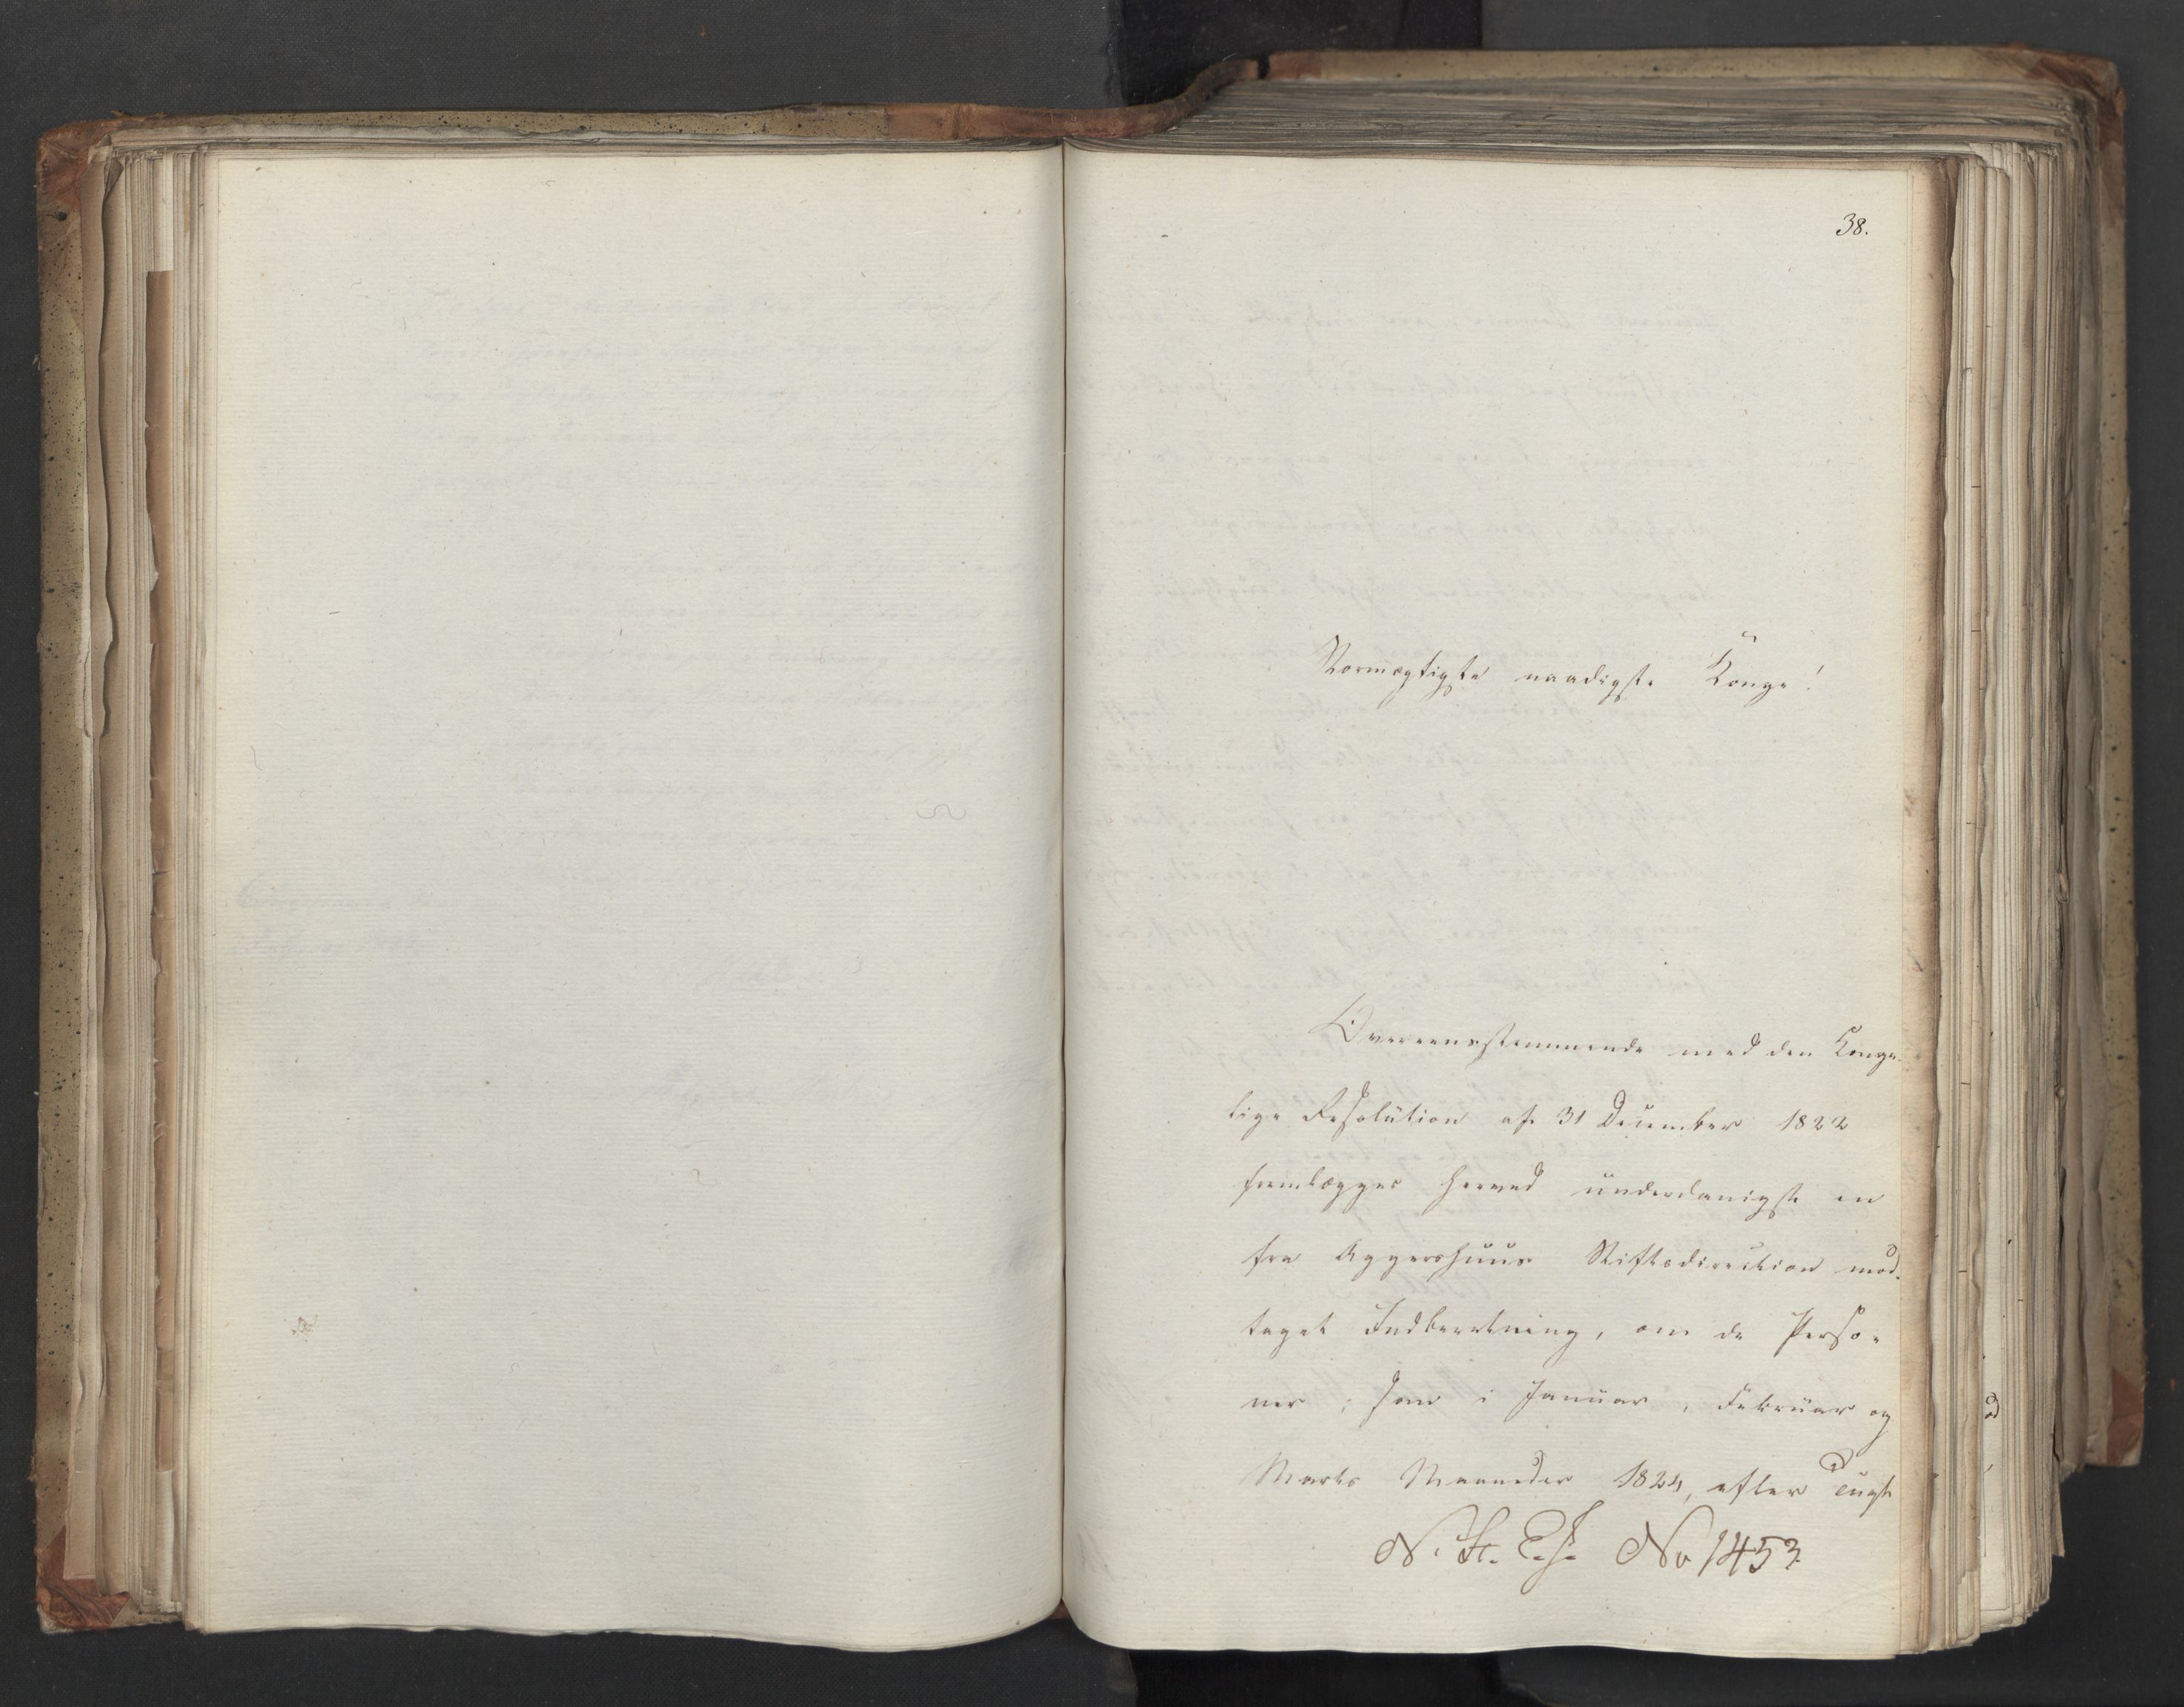 38.
Stormægtigste naadigste Konge!
Overeensstemmende med den Konge-
lige Resolution af 31 December 1822
fremlægges herved underdanigst en
fra Aggershuus Stiftsdirection mod-
taget Indberetning, om de Perso-
ner, som i Januar, Februar og
Marts Maaneder 1824, efter
N. St. E. No 1453.